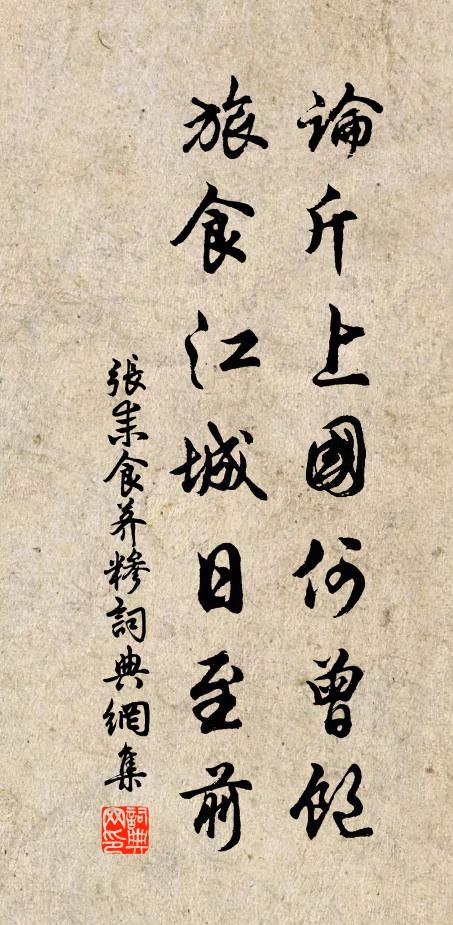 論斤上國何曾飽
旅食江城日至前
張耒食薺糝詞典網集
詞典網印